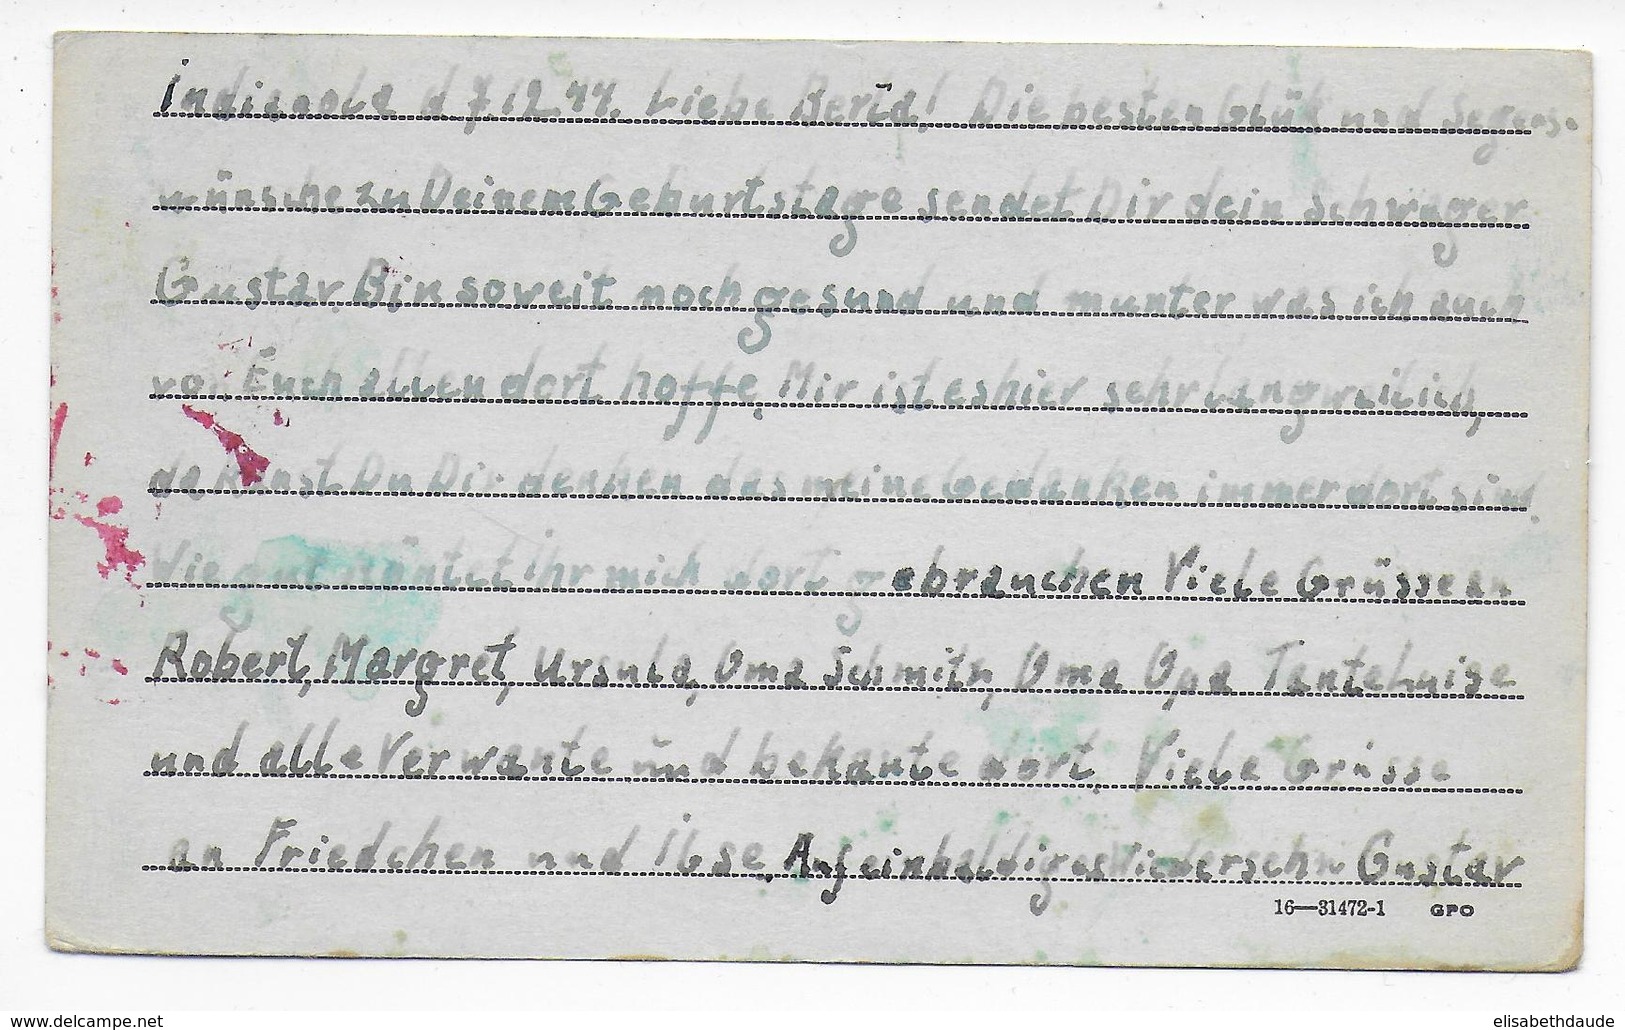 Indianola d 7.12.44. Liebe Berta! Die besten Glük und Segens-
wünsche zu Deinem Geburtstage sendet Dir dein Schwager
Gustav. Bin soweit noch gesund und munter was ich auch
von Euch allen dort hoffe. Mir ist es hier sehr langweilich,
da kanst Du Dir denken das meine Gedanken immer dort sind.
Wie gut ihr mich dort gebrauchen Viele Grüsse an
Robert, Margret, Ursula, Oma Schmitz, Oma Opa Tante Luise
und alle Verwante und bekante dort. Viele Grüsse
an Friedchen und Ilse. Auf ein baldiges Wiedersehn Gustav
16—31472-1 GPO
delcampe.net
elisabethdaude